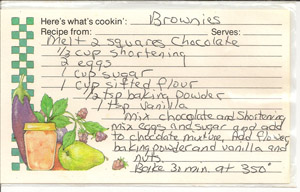 Here's what's cookin': Brownies
Recipe from: Serves:
Melt 2 squares Chocolate
1/2 cup shortening
2 eggs
1 cup sugar
1 cup sifted flour
1/2 tsp baking powder
1 tsp vanilla
Mix chocolate and shortening
mix eggs and sugar and add
to chocolate mixture. Add flour
baking powder and vanilla and
nuts.
Bake 30 min. at 350°